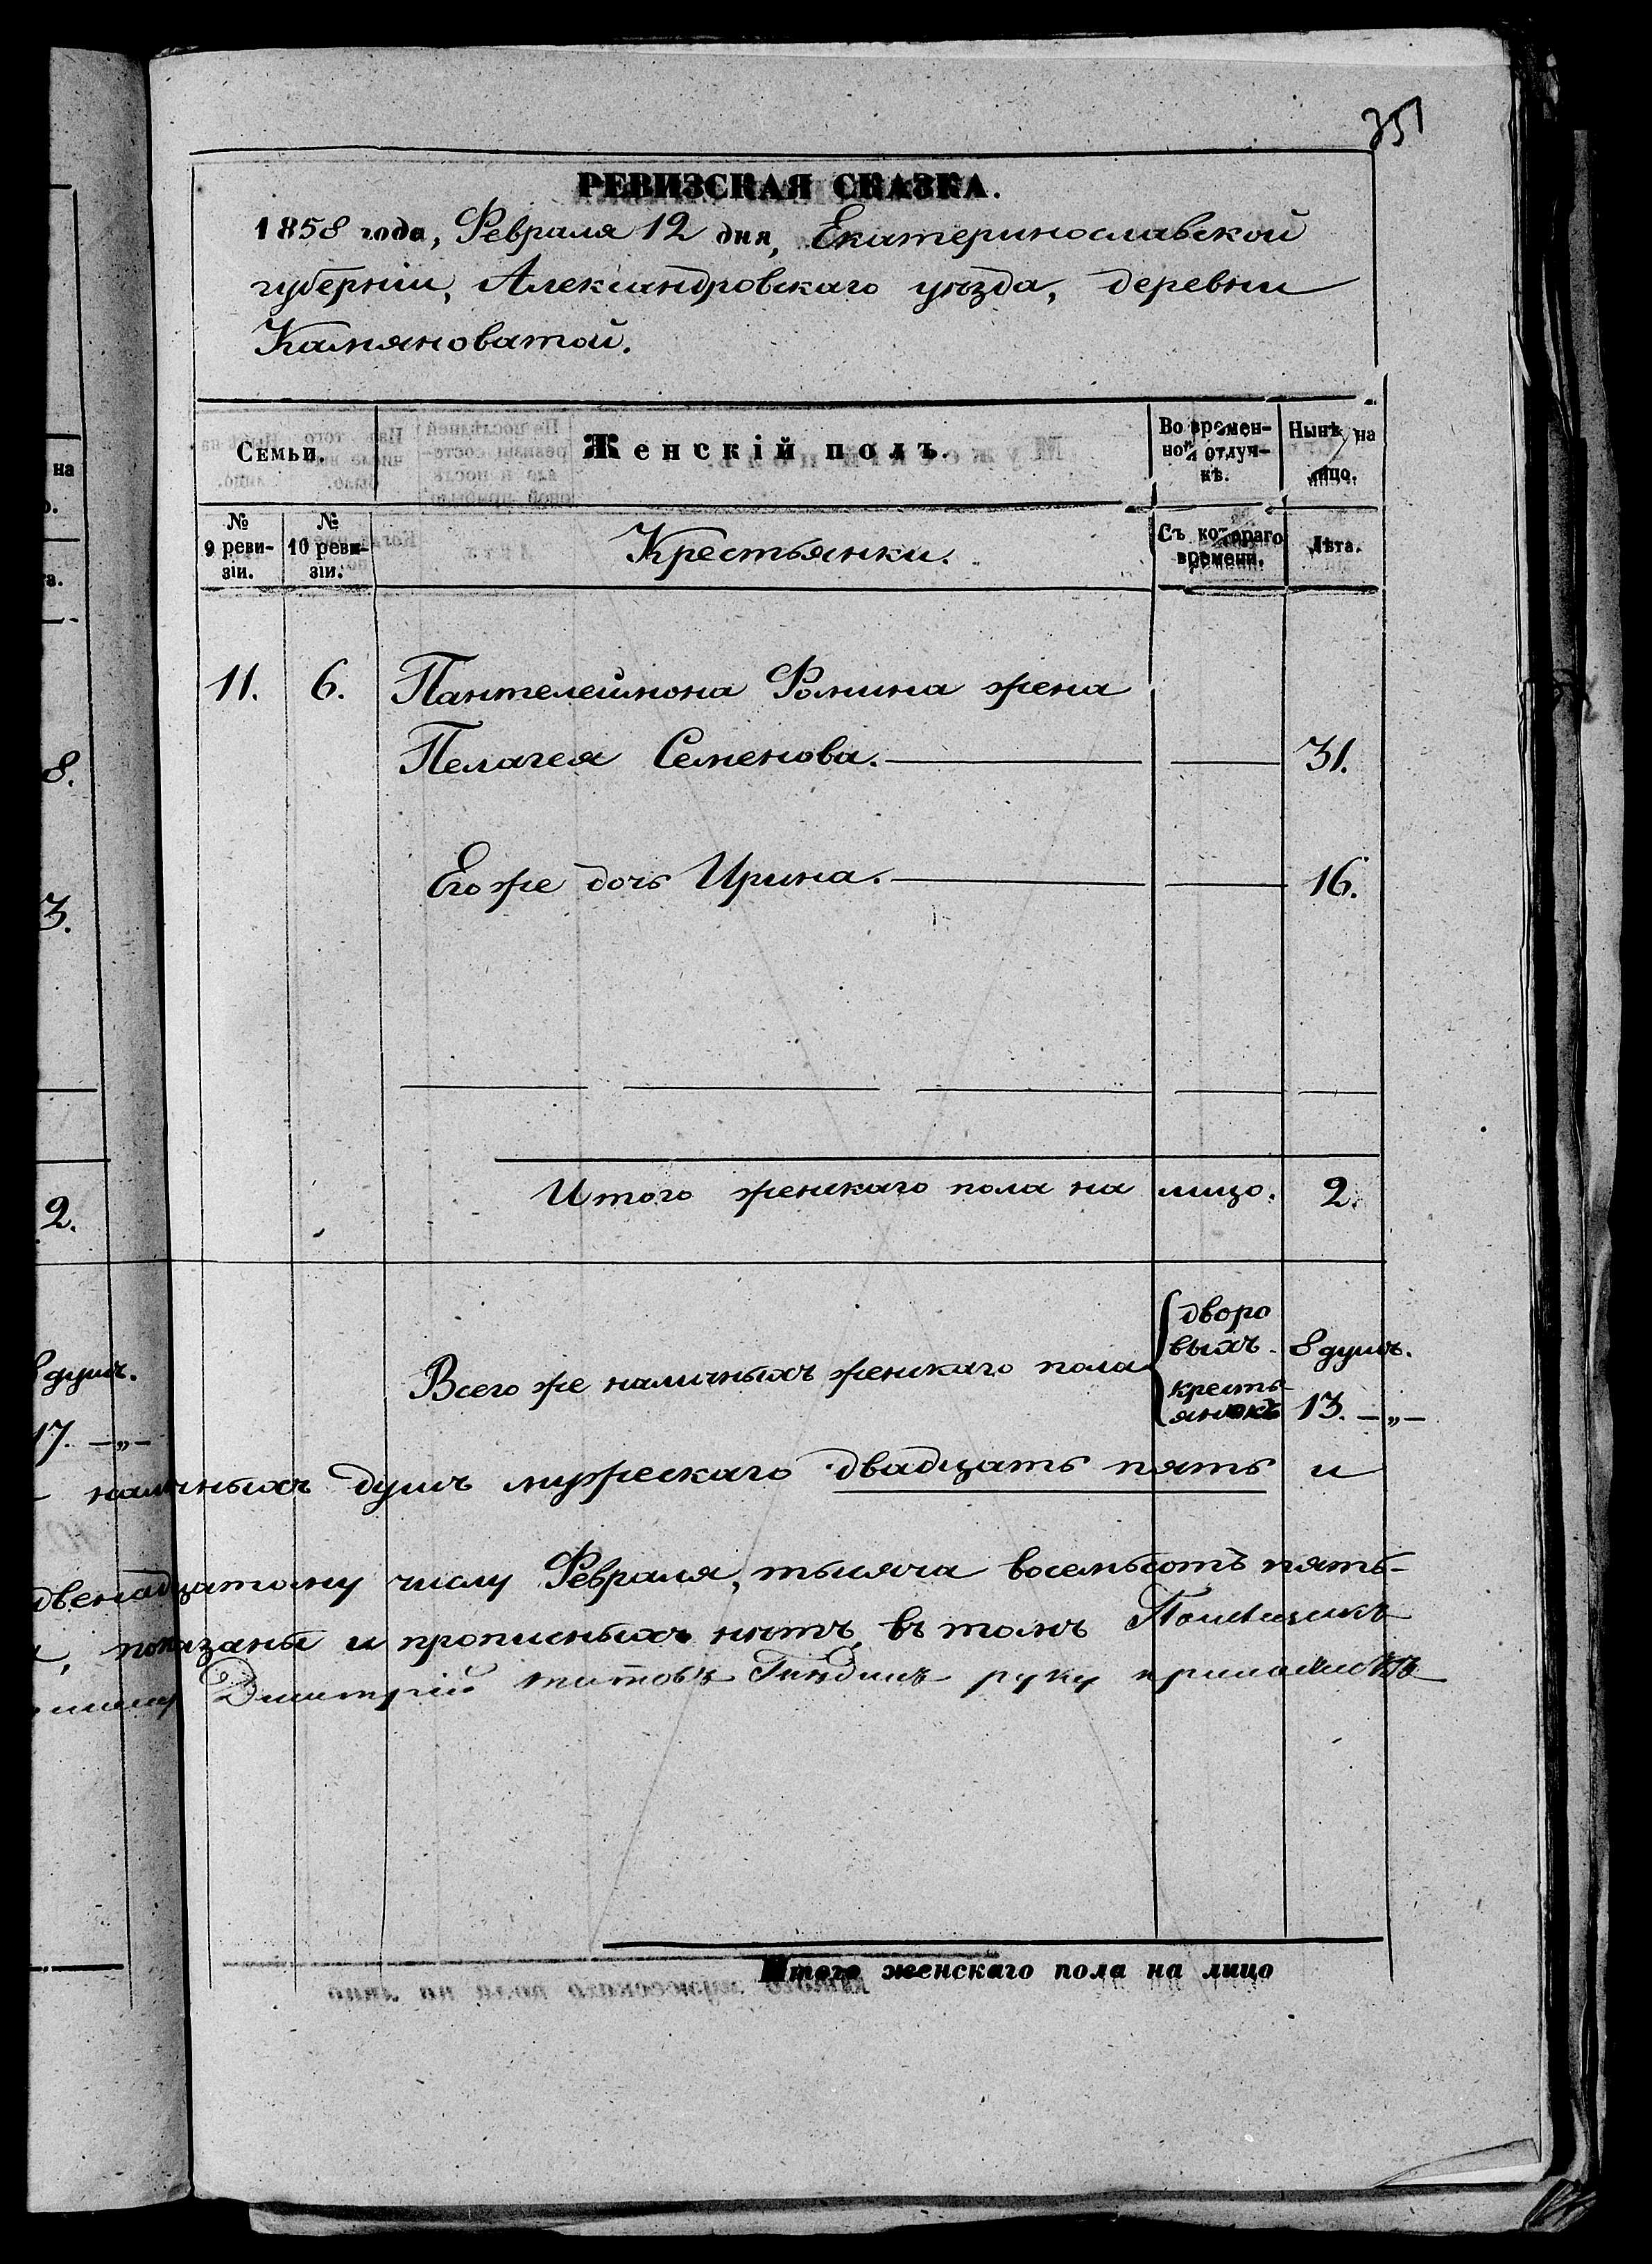 351
РЕВИЗСКАЯ СКАЗКА.
1858 года, Февраля 12 дня, Екатеринославской
губернiи, Александровскаго уѣзда, деревни
Камяноватой.
Семьи.
Женскій полъ.
Во времен-
ной отлуч-
кѣ.
Нынѣ на
лицо.
№
9 реви-
зіи.
№
10 реви-
зіи.
Крестьянки.
Съ котораго
времени.
Лѣта.
11. 6. Пантелеймона Фомина жена
Пелагея Семенова. 31.
Его же дочь Ирина. 16.
Итого женскаго пола на лицо. 2.
Всего же наличныхъ женскаго пола
дворо
выхъ. 8 душъ.
кресть-
янокъ 13. —„—
наличныхъ душъ мужескаго двадцать пять и
двенадцатому числу Февраля, тысяча восемьсотъ пять-
показаны и прописныхъ нѣтъ, въ томъ Помѣщикъ
Дмитрій руку приложилъ
Итого женскаго пола на лицо
на
8.
3.
2.
душъ.
17. —„—